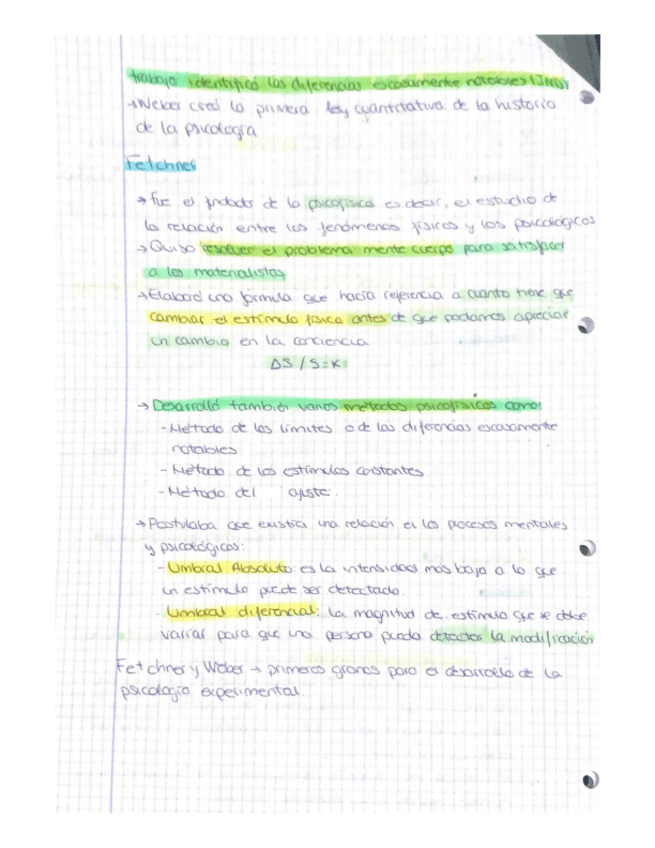 trabajo identificó las diferencias escasamente notables (JND)
→Weber creó la primera ley cuantitativa de la historia
de la psicología
Fetchner
→ Fue el fundador de la psicofísica es decir, el estudio de
la relación entre los fenómenos físicos y los psicológicos
→ Quiso resolver el problema mente cuerpo para satisfacer
a los materialistas
→Elaboró una fórmula que hacía referencia a cuanto tiene que
cambiar el estímulo físico antes de que podamos apreciar
un cambio en la conciencia
ΔS / S=K
→ Desarrolló también varios métodos psicofísicos como:
-Método de los límites o de las diferencias escasamente
notables
- Método de los estímulos constantes
- Método del ajuste.
→ Postulaba que existía una relación en los procesos mentales
y psicológicos:
- Umbral Absoluto: es la intensidad más baja a la que
un estímulo puede ser detectado.
- Umbral diferencial: la magnitud de estímulo que se debe
variar para que una persona pueda detectar la modificación
Fetchner y Weber → primeros granos para el desarrollo de la
psicología experimental.